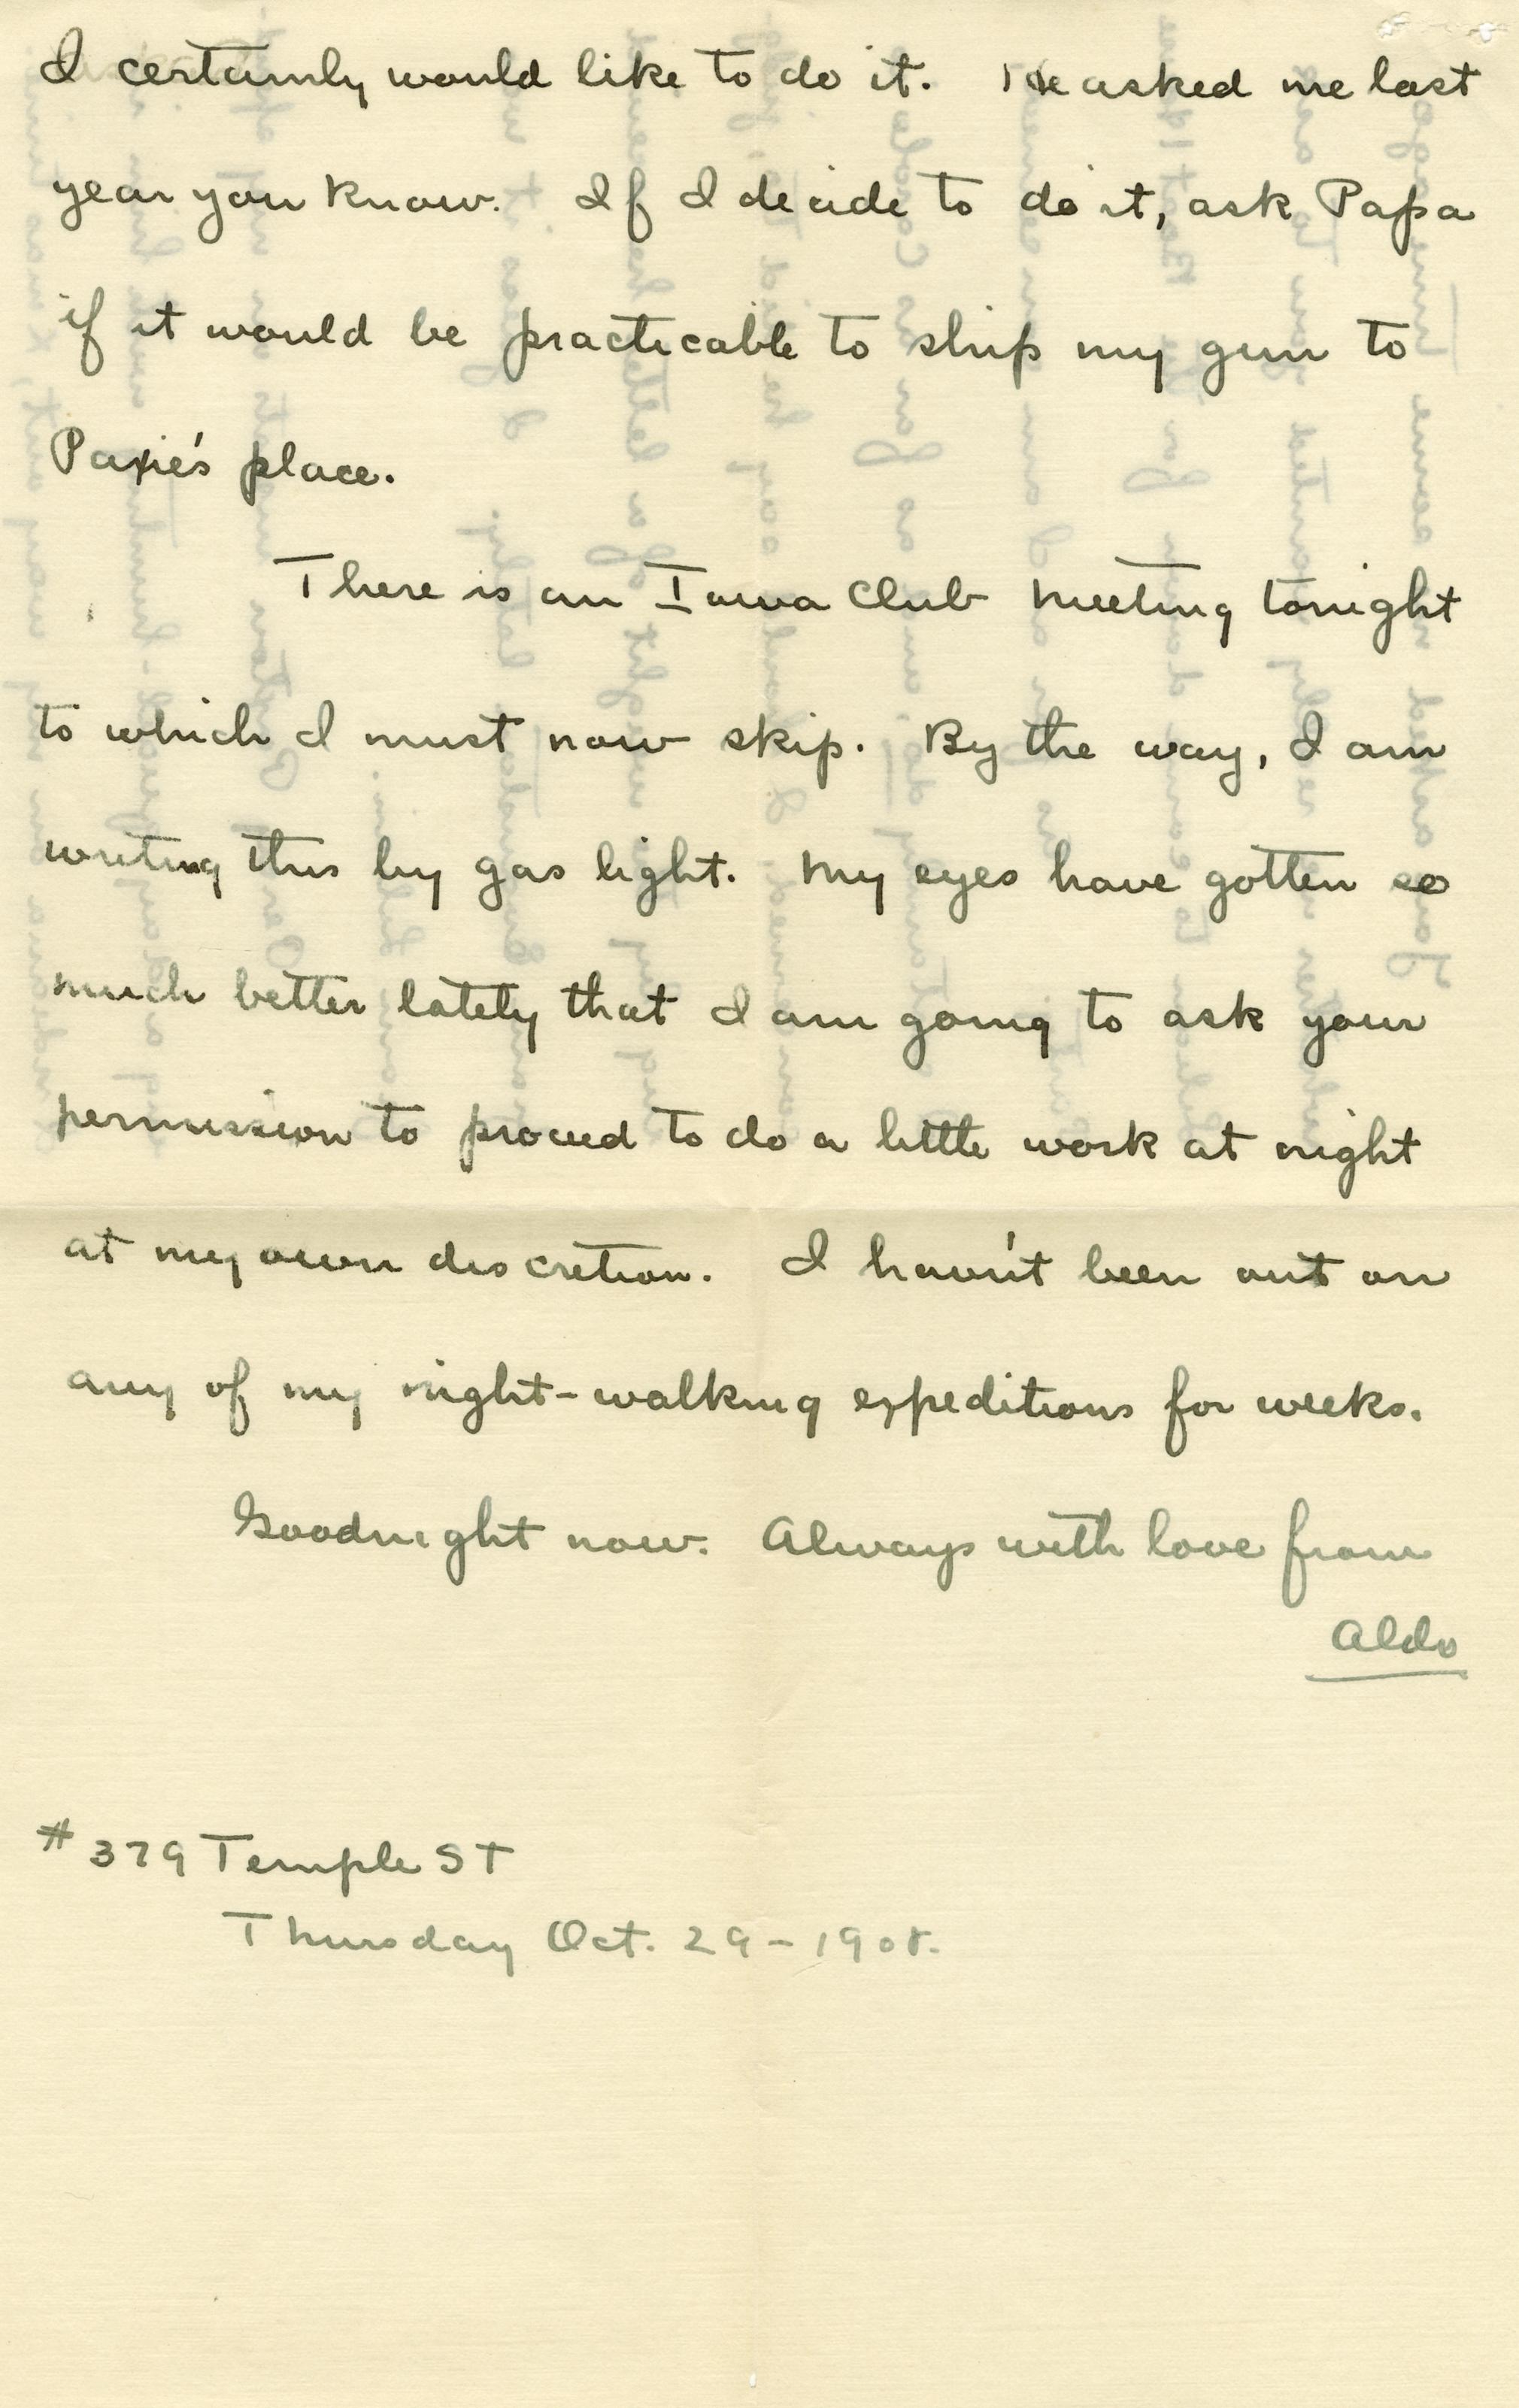 I certainly would like to do it. He asked me last
year you know. If I decide to do it, ask Papa
if it would be practicable to ship my gun to
Paxie's place.
There is an Iowa Club meeting tonight
to which I must now skip. By the way, I am
writing this by gas light. My eyes have gotten so
much better lately that I am going to ask your
permission to proceed to do a little work at night
at my own discretion. I havn't been out on
any of my night-walking expeditions for weeks.
Goodnight now. Always with love from
Aldo
#379 Temple St
Thursday Oct. 29-1908.